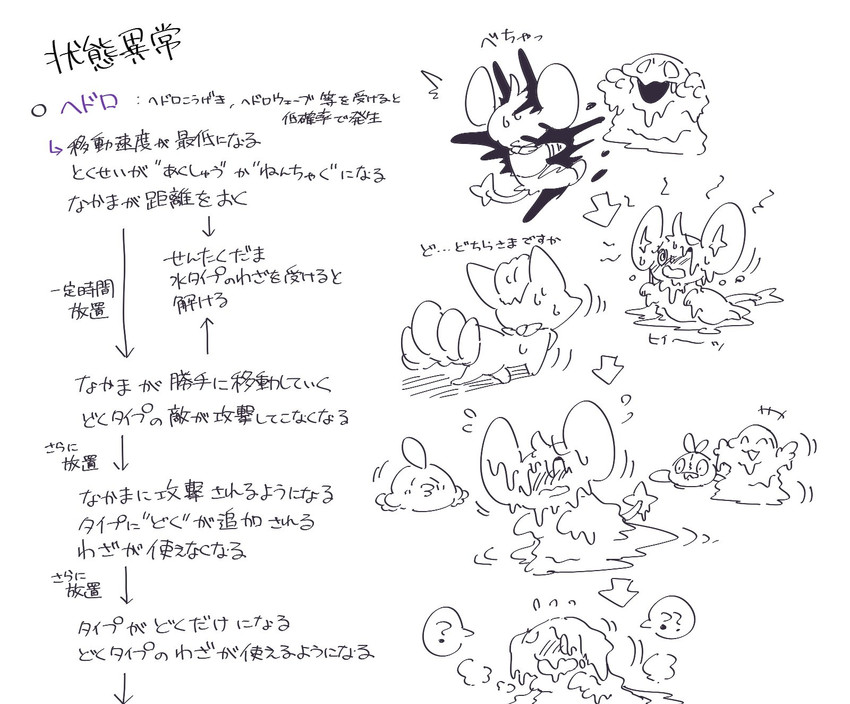 状態異常
○ ヘドロ : ヘドロこうげき, ヘドロウェーブ 等を受けると
低確率で発生
↳ 移動速度が最低になる
とくせいが"あくしゅう"か"ねんちゃく"になる
なかまが距離をおく
せんたくだま
水タイプのわざを受けると
解ける
一定時間
放置
なかまが勝手に移動していく
どくタイプの敵が攻撃してこなくなる
さらに
放置
なかまに攻撃されるようになる
タイプに"どく"が追加される
わざが使えなくなる
さらに
放置
タイプがどくだけになる
どくタイプのわざが使えるようになる
べちゃっ
ど…どちらさまですか
ヒイ〜ッ
?
??